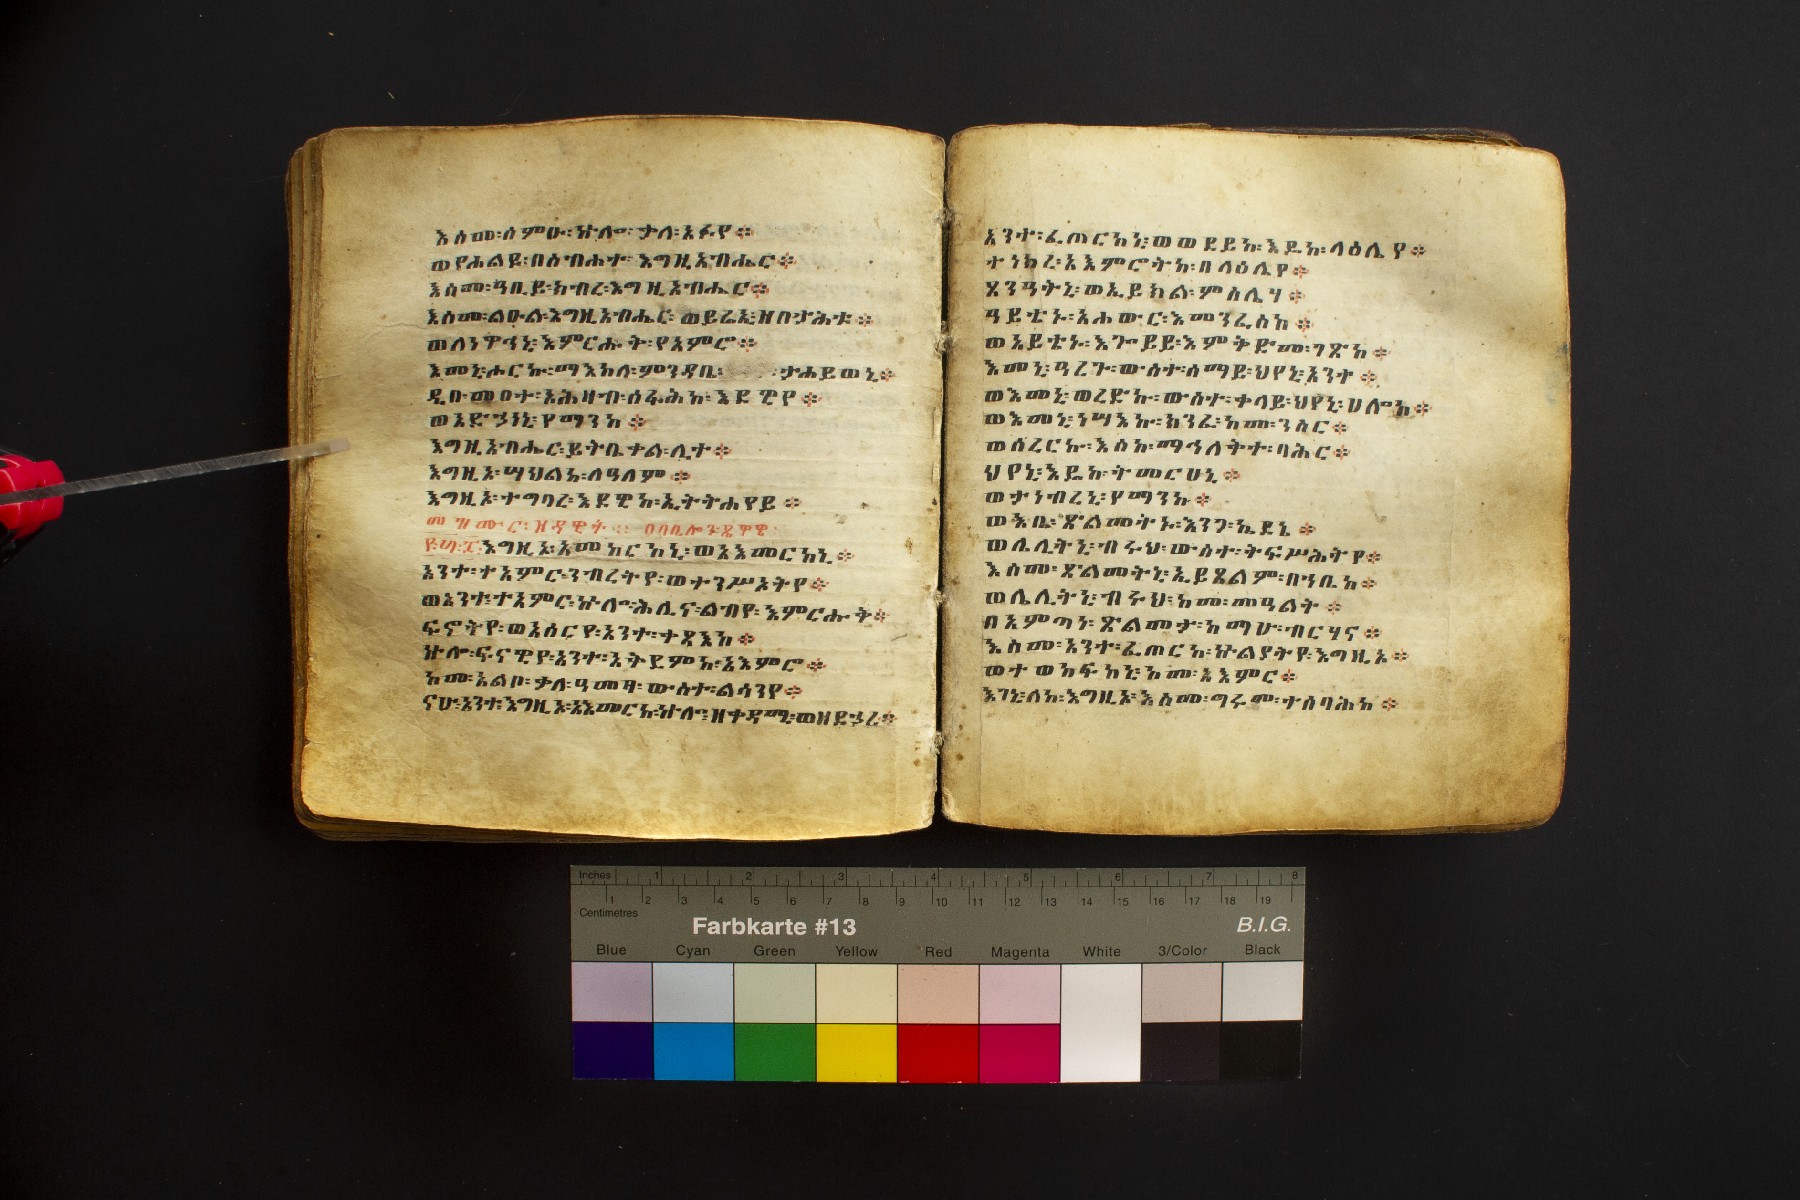 እስመ፡ሰምዑ፡ኵሎ፡ቃለ፡አፉየ፨
ወየሐልዩ፡በስብሐተ፡እግዚአብሔር፨
እስመ፡ዓቢይ፡ክብረ፡እግዚአብሔር፨
እስመ፡ልዑል፡እግዚአብሔር፡ወይሬኢ፡ዘበታሕቱ፨
ወለነዋኅኒ፡እምርሑቅ፡የአምሮ፨
እመኒ፡ሖርኩ፡ማእከለ፡ምንዳቤ፡ ታሐይወኒ፨
ዲበ፡መዐተ፡አሕዛብ፡ሰፋሕከ፡እደዊየ፨
ወአድኃነኒ፡የማንከ፨
እግዚአብሔር፡ይትቤቀል፡ሊተ፨
እግዚኦ፡ሣህልከ፡ለዓለም፨
እግዚኦ፡ተግባረ፡እደዊከ፡ኢትትሐየይ፨
መዝሙር፡ዘዳዊት፡
እግዚኦ፡አመከርከኒ፡ወአእመርከኒ፨
አንተ፡ተአምር፡ንብረትየ፡ወተንሥኦትየ፨
ወአንተ፡ተአምር፡ኵሎ፡ሕሊና፡ልብየ፡እምርሑቅ፨
ፍኖትየ፡ወአሰርየ፡አንተ፡ቀጻእከ፨
ኵሎ፡ፍናዊየ፡አንተ፡አቅደምከ፡አእምሮ፨
ከመ፡አልቦ፡ቃለ፡ዓመፃ፡ውስተ፡ልሳንየ፨
ናሁ፡አንተ፡እግዚኦ፡አእመርከ፡ኵሎ፡ዘቀዳሚ፡ወዘደኃሪ፨
አንተ፡ፈጠርከኒ፡ወወደይከ፡እዴከ፡ላዕሌየ፨
ተነክረ፡አእምሮትከ፡በላዕሌየ፨
ጸንዓትኒ፡ወኢይክል፡ምስሌሃ፨
ዓይቴኑ፡አሐውር፡እመንፈስከ፨
ወአይቴኑ፡እጐይይ፡እምቅድመ፡ገጽከ፨
እመኒ፡ዓረጉ፡ውስተ፡ሰማይ፡ህየኒ፡አንተ፨
ወእመኒ፡ወረድኩ፡ውስተ፡ቀላይ፡ህየኒ፡ሀሎከ፨
ወእመኒ፡ነሣእኩ፡ክንፈ፡ከመ፡ንስር፨
ወሰረርኩ፡እስከ፡ማኅለቅተ፡ባሕር፨
ህየኒ፡እዴከ፡ትመርሀኒ፨
ወታነብረኒ፡የማንከ፨
ወእቤ፡ጽልመትኑ፡እንጋ፡ኬደኒ፨
ወሌሊትኒ፡ብሩህ፡ውስተ፡ትፍሥሕትየ፨
እስመ፡ጽልመትኒ፡ኢይጼልም፡በኀቤከ፨
ወሌሊትኒ፡ብሩህ፡ከመ፡መዓልት፨
በአምጣነ፡ጽልመታ፡ከማሁ፡ብርሃና፨
እስመ፡አንተ፡ፈጠርከ፡ኵልያትየ፡እግዚኦ፨
ወተወከፍከኒ፡ከመ፡አእምር፨
እገኒ፡ለከ፡እግዚኦ፡እስመ፡ግሩም፡ተሰባሕከ፨
Inches 1 2 3 4 5 6 7 8
1 2 3 4 5 6 7 8 9 10 11 12 13 14 15 16 17 18 19
Centimetres
Farbkarte #13 B.I.G.
Blue Cyan Green Yellow Red Magenta White 3/Color Black